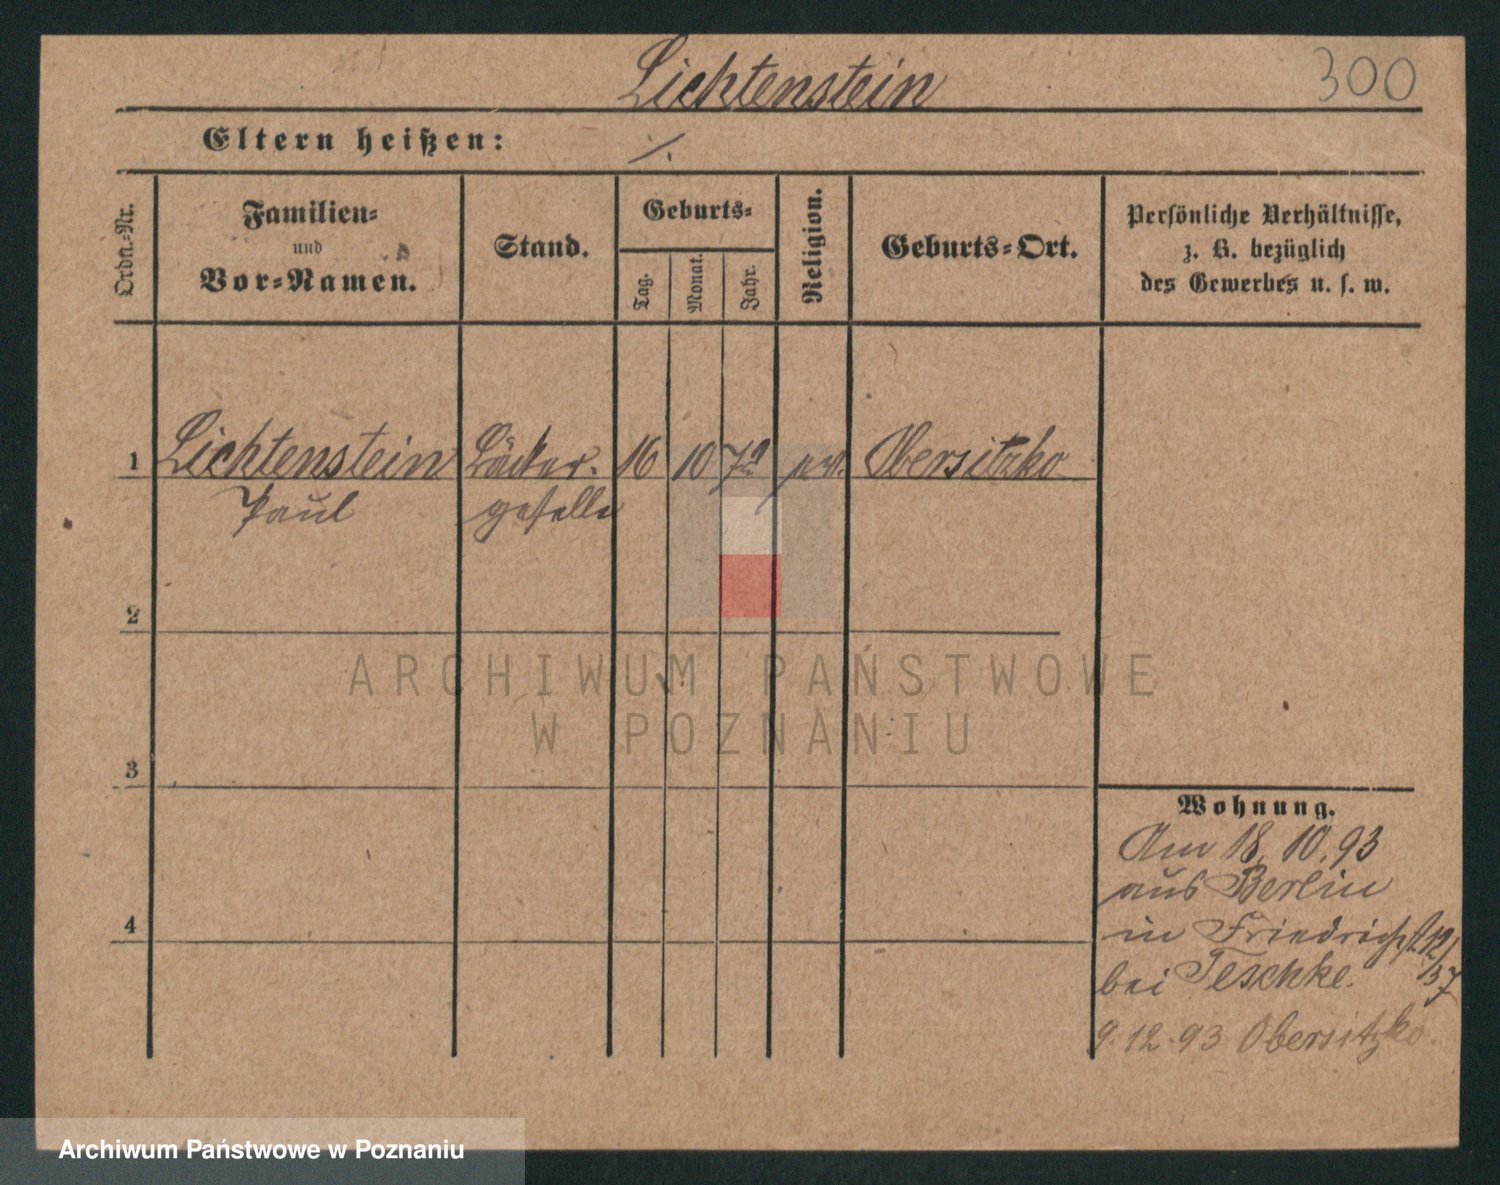 Lichtenstein
300
Eltern heißen: ·/.
Ordn.-Nr.
Familien-
und
Vor-Namen.
Stand.
Geburts-
Tag.
Monat.
Jahr.
Religion.
Geburts-Ort.
Persönliche Verhältnisse,
z. B. bezüglich
des Gewerbes u. s. w.
1 Lichtenstein Bäcker- 16 10 72 Obersitzko
Paul geselle
2
3
4
Wohnung.
Am 18.10.93
aus Berlin
in Friedrichst
bei Teschke.
9.12.93 Obersitzko.
ARCHIWUM PAŃSTWOWE
W POZNANIU
Archiwum Państwowe w Poznaniu